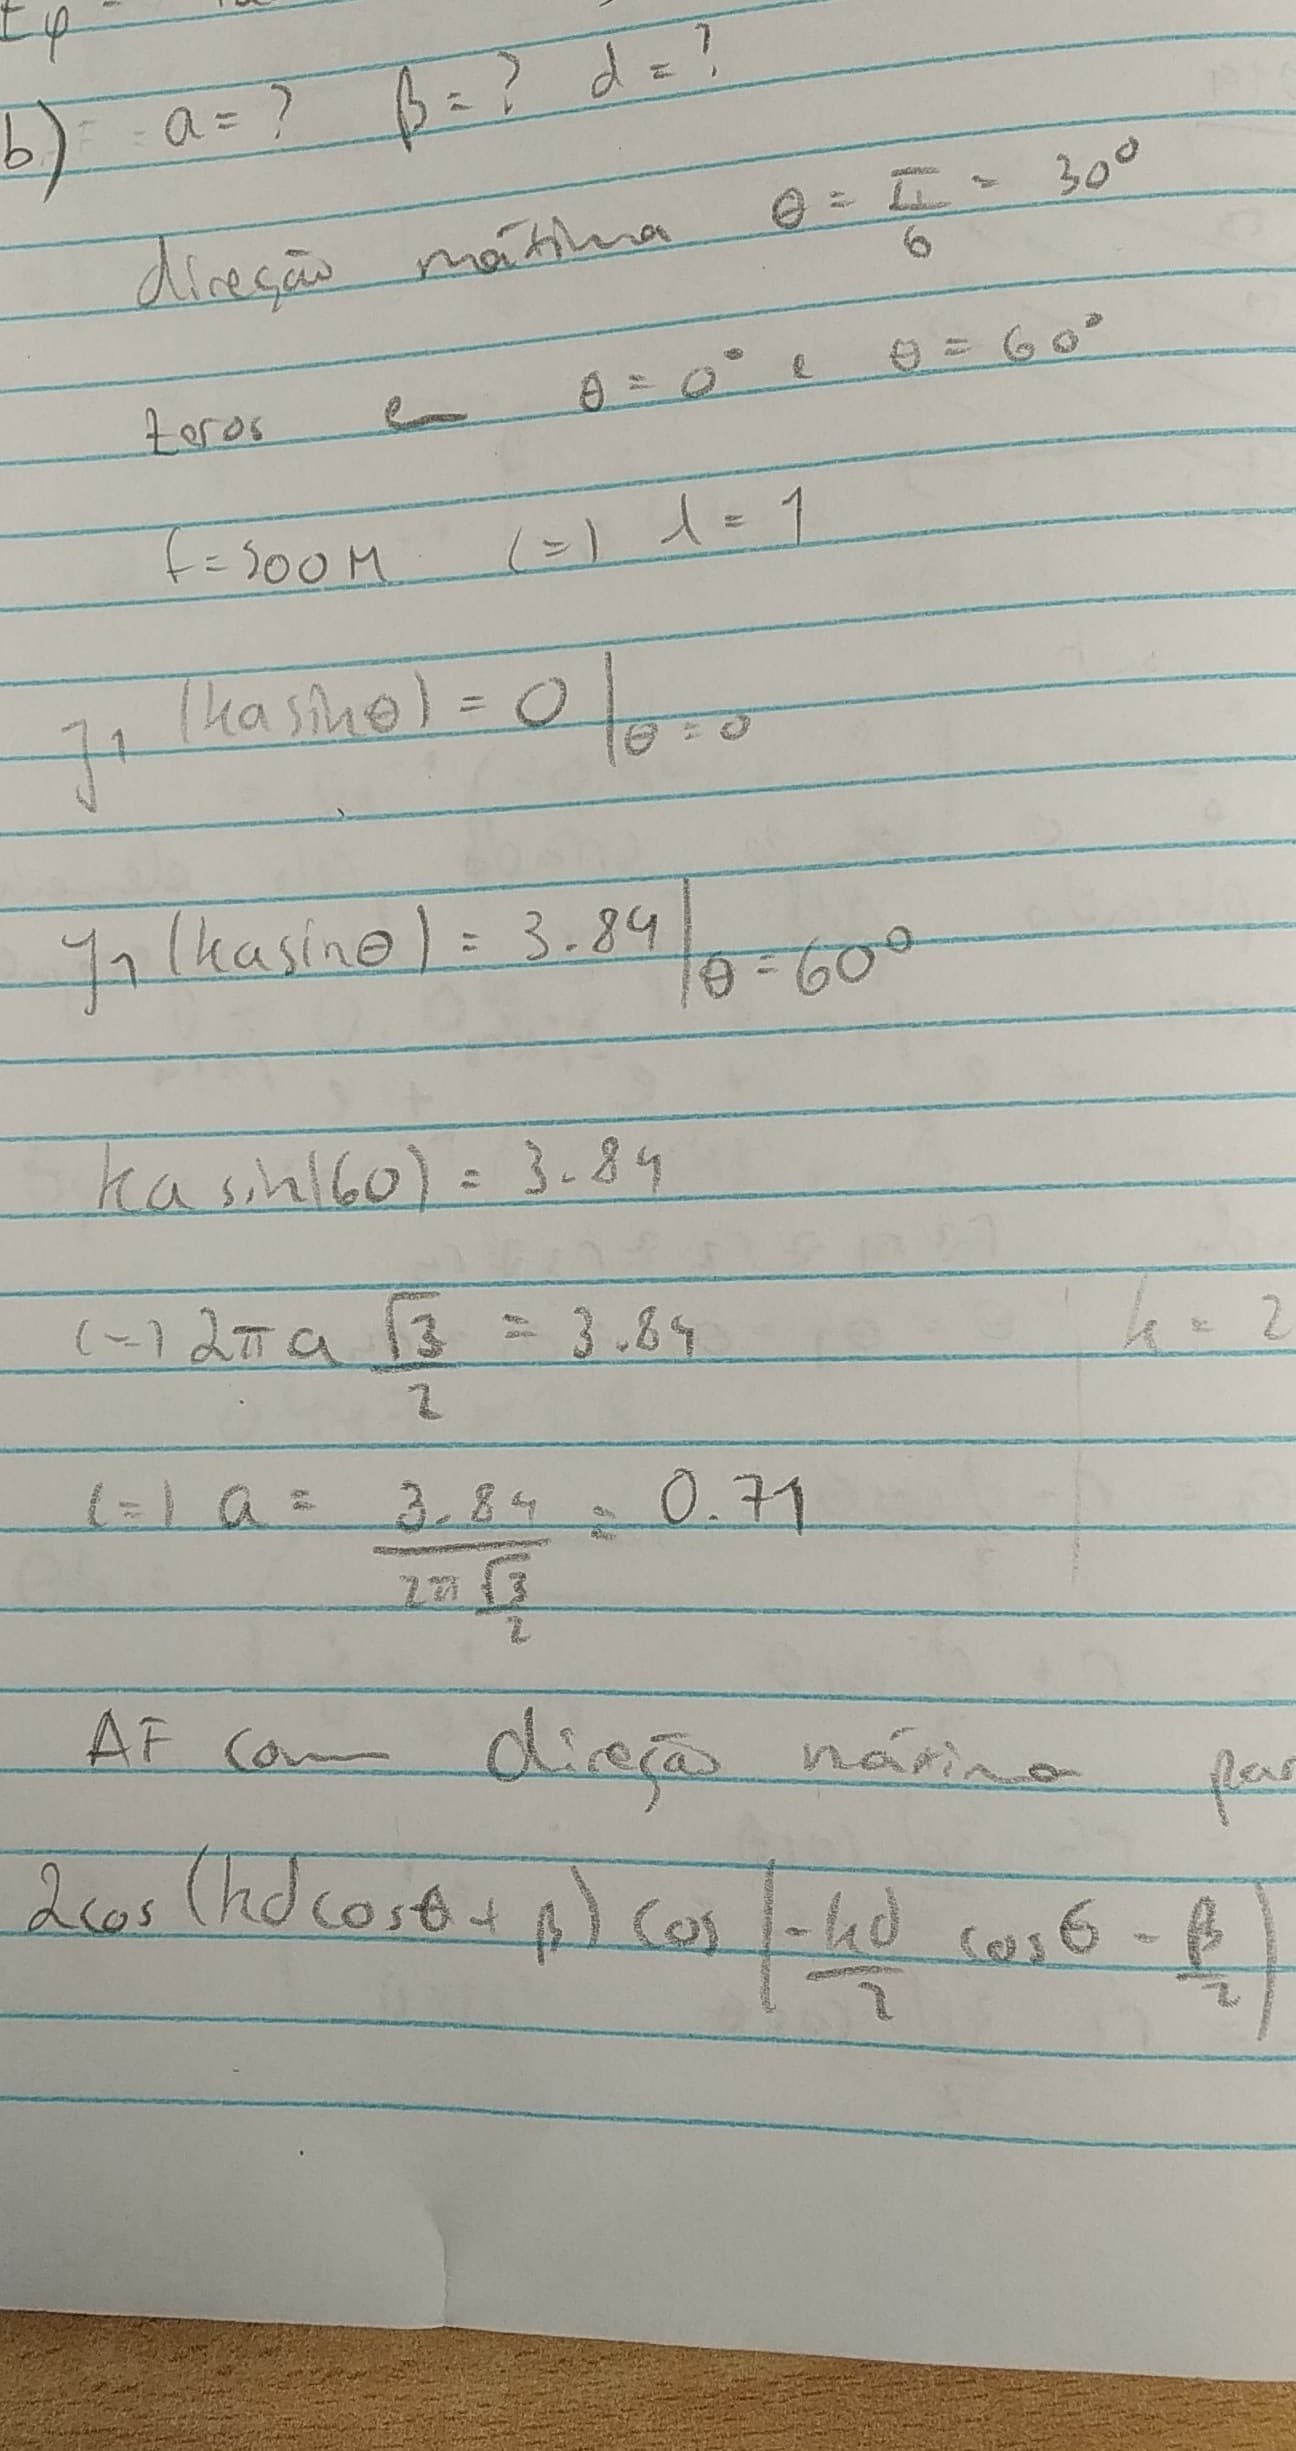 b) a = ? β = ? d = ?
direção máxima θ = π/6 = 30°
zeros em θ = 0° e θ = 60°
f = 300M (=) λ = 1
J1 (ka sinθ) = 0 |θ = 0
J1 (ka sinθ) = 3.84 |θ = 60°
ka sin(60) = 3.84
(=) 2π a √3/2 = 3.84 k = 2
(=) a = 3.84 / (2π √3/2) = 0.71
AF com direção máxima par
2cos (kd cosθ + β) cos (-kd/2 cosθ - β/2)